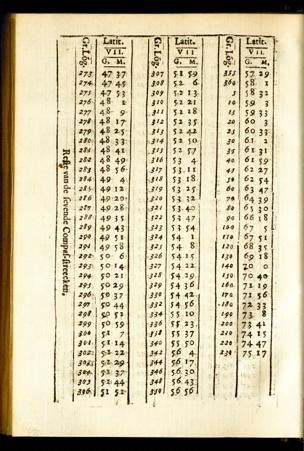 Gr. Lõg.
Latit.
VII.
G. M.
273 47 37
274 47 45
275 47 53
276 48 1
277 48 9
278 48 17
279 48 25
280 48 33
281 48 41
282 48 49
283 48 56
284 49 4
285 49 12
286 49 20
287 49 28
288 49 35
289 49 43
290 49 51
291 49 58
292 50 6
293 50 14
294 50 21
295 50 29
296 50 37
297 50 44
298 50 51
299 50 59
300 51 7
301 51 14
302 51 22
303 51 29
304 51 37
305 51 44
306 51 52
Gr. Lõg.
Latit.
VII
G. M.
307 51 59
308 52 6
309 52 13
310 52 21
311 52 18
312 52 35
313 52 42
314 52 50
315 52 57
316 53 4
317 53 11
318 53 18
319 53 25
320 53 32
321 53 40
322 53 47
323 53 54
324 54 1
325 54 8
326 54 15
327 54 22
328 54 29
329 54 36
330 54 42
332 54 56
334 55 10
336 55 23
338 55 37
340 55 50
342 56 4
344 56 17
346 56 30
348 56 43
350 56 56
Gr. Lõg.
Latit.
VII
G. M.
355 57 29
360 58 1
5 58 32
10 59 3
15 59 33
20 60 3
25 60 33
30 61 2
35 61 31
40 61 59
45 62 27
50 62 54
60 63 47
70 64 39
80 65 30
90 66 18
100 67 5
110 67 51
120 68 35
130 69 18
140 70 0
150 70 40
160 71 19
170 71 56
180 72 33
190 73 8
200 73 41
210 74 15
220 74 47
230 75 17
Reste van de sevende Compas-streecken.